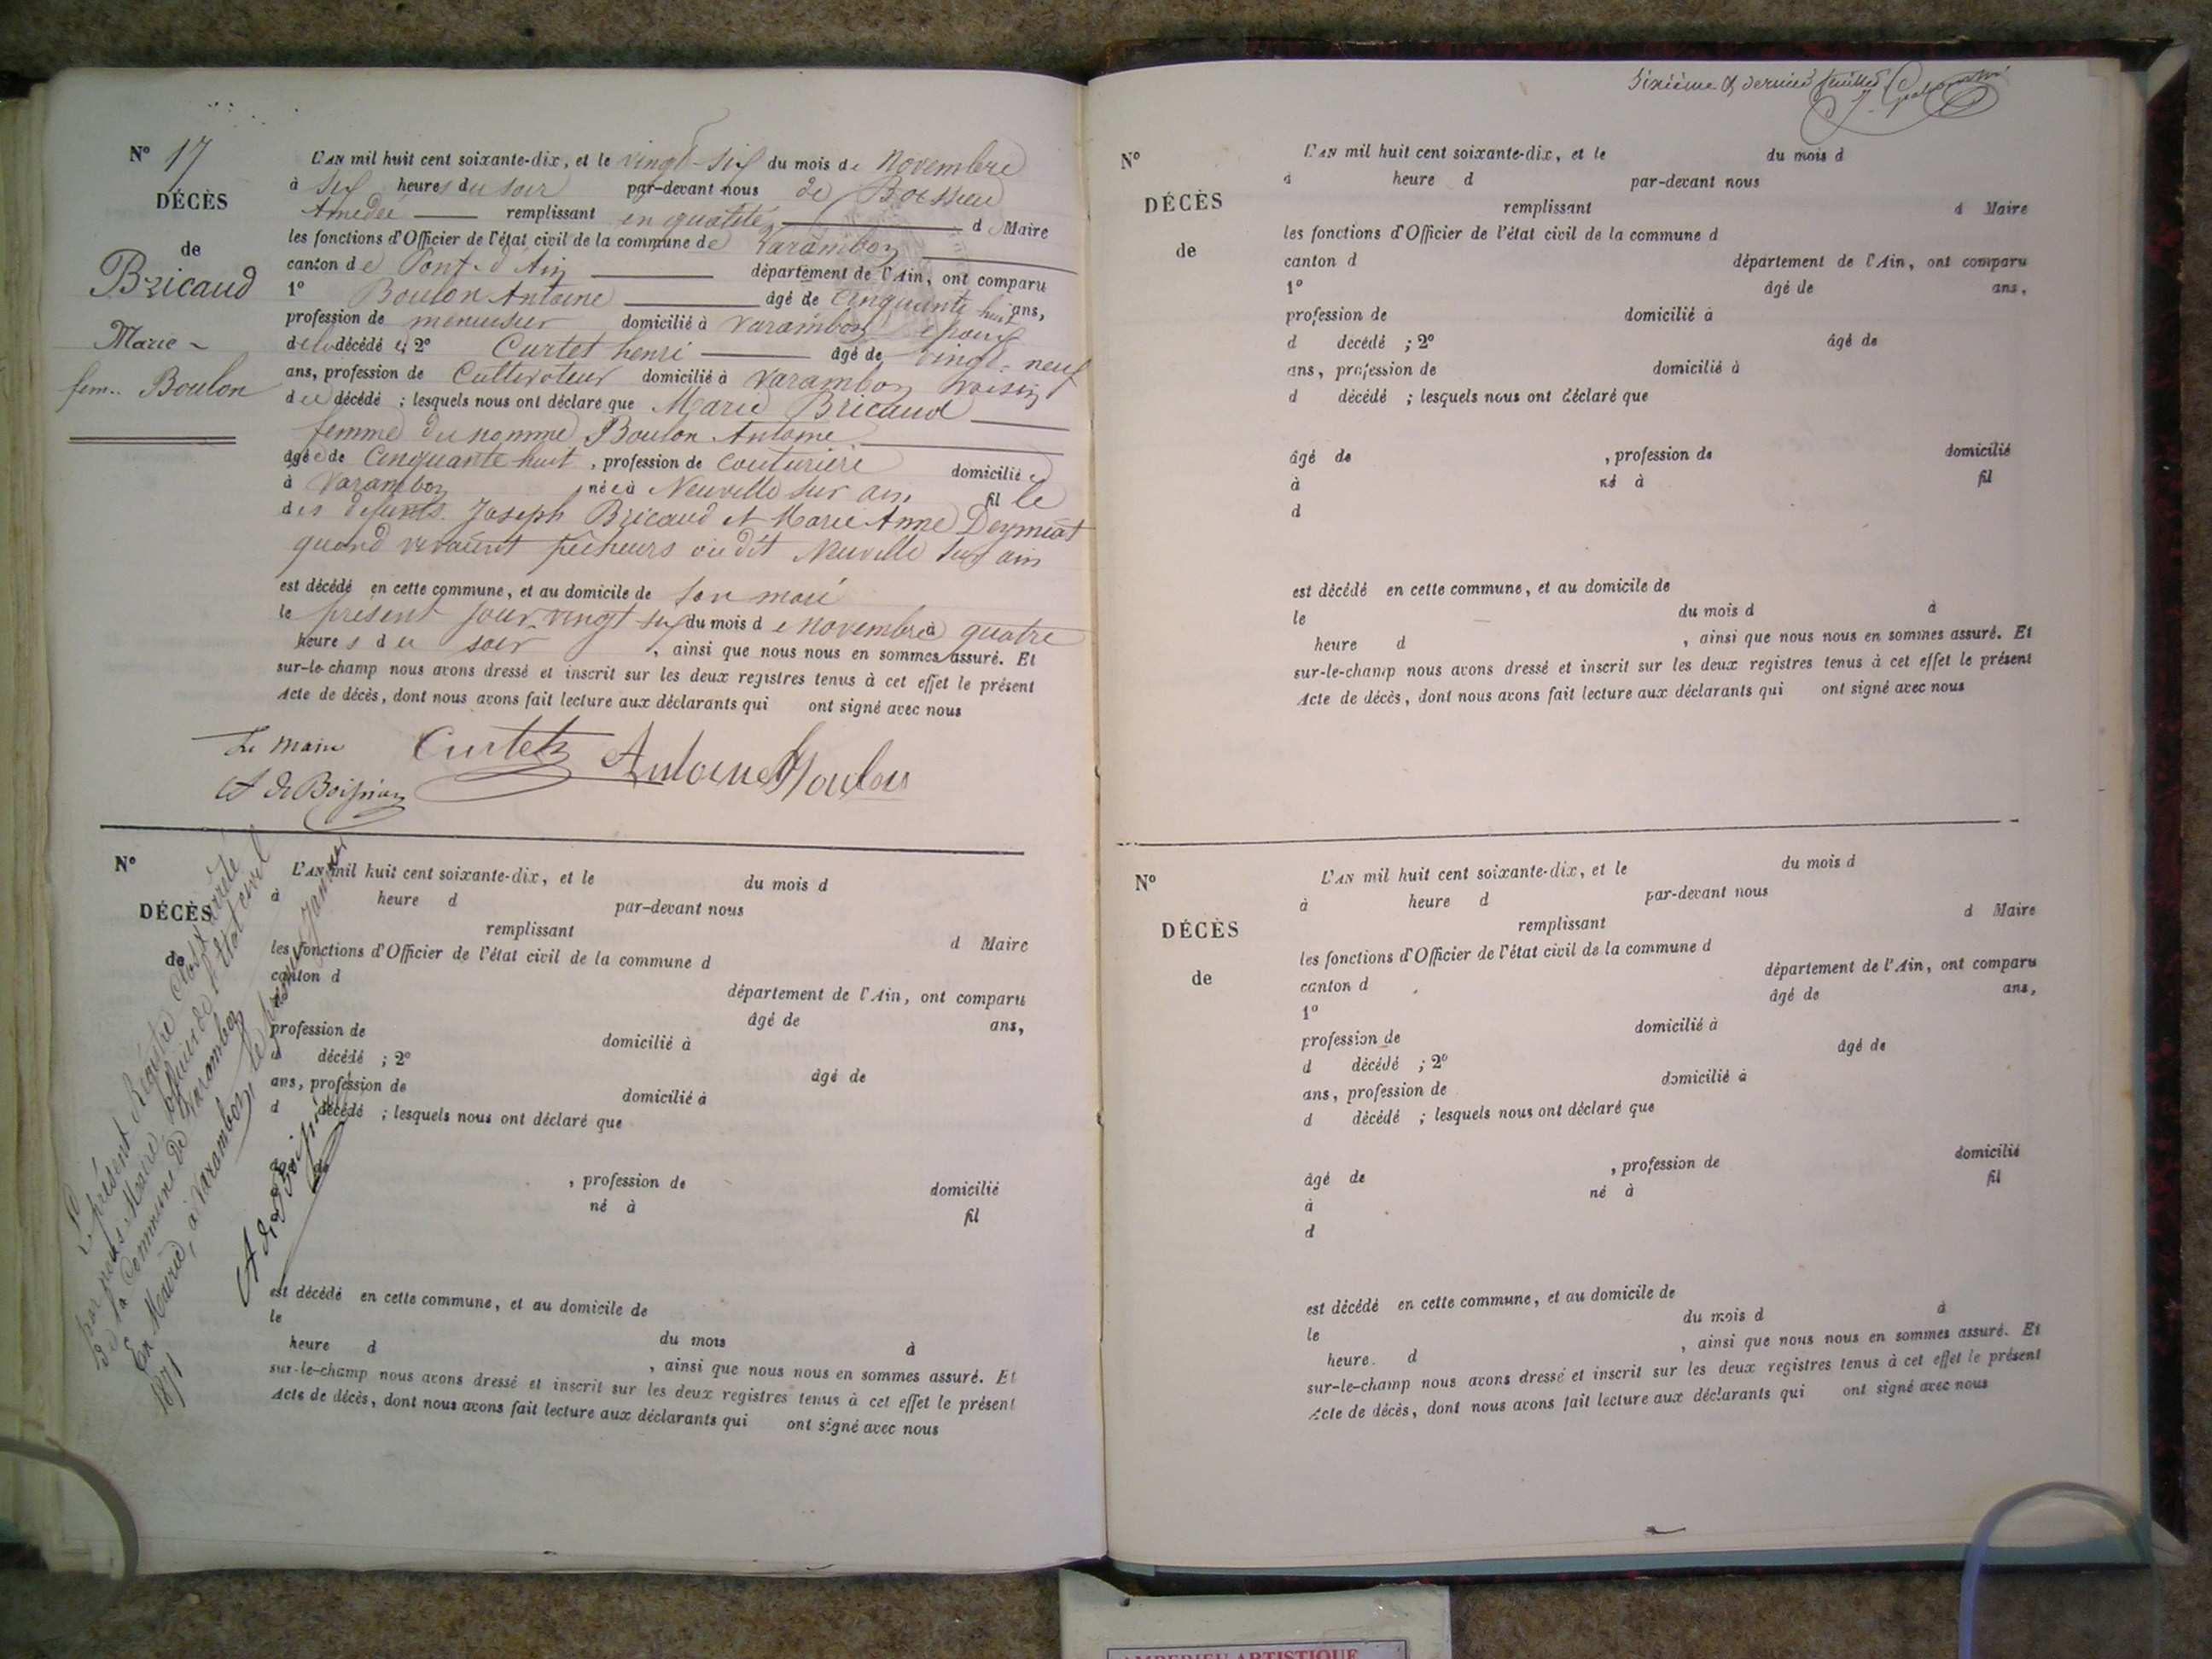 N° 17
DÉCÈS
de
Bricaud
Marie
fem. Boulon
L'AN mil huit cent soixante-dix, et le vingt-six du mois de Novembre
à six heures du soir par-devant nous de Boissieu
Amédée remplissant en qualité de Maire
les fonctions d'Officier de l'état civil de la commune de Varambon
canton de Pont-d'Ain département de l'Ain, ont comparu
1° Boulon Antoine âgé de Cinquante huit ans,
profession de menuisier domicilié à Varambon époux
de la décédé ; 2° Curtet henri âgé de vingt-neuf
ans, profession de Cultivateur domicilié à Varambon voisin
de décédé ; lesquels nous ont déclaré que Marie Bricaud
femme du nommé Boulon Antoine
âgée de Cinquante huit , profession de Couturière domicilié
à Varambon née à Neuville sur ain, fille
des défunts Joseph Bricaud et Marie Anne Deymiat
quand vivaient pêcheurs au dit Neuville sur ain
est décédé en cette commune, et au domicile de son mari
le présent jour vingt six du mois de novembre à quatre
heures du soir , ainsi que nous nous en sommes assuré. Et
sur-le-champ nous avons dressé et inscrit sur les deux registres tenus à cet effet le présent
Acte de décès, dont nous avons fait lecture aux déclarants qui ont signé avec nous
Le maire Curtet Antoine Boulon
A de Boissieu
N°
DÉCÈS
de
L'AN mil huit cent soixante-dix, et le du mois d
à heure d par-devant nous
remplissant d Maire
les fonctions d'Officier de l'état civil de la commune d
canton d département de l'Ain, ont comparu
âgé de ans,
profession de domicilié à
d décédé ; 2° âgé de
ans, profession de domicilié à
d décédé ; lesquels nous ont déclaré que
, profession de domicilié
né à fil
est décédé en cette commune, et au domicile de
le du mois à
heure d , ainsi que nous nous en sommes assuré. Et
sur-le-champ nous avons dressé et inscrit sur les deux registres tenus à cet effet le présent
Acte de décès, dont nous avons fait lecture aux déclarants qui ont signé avec nous
Le présent Registre Clos & arrêté
par nous Maire, officier de l'état civil
de la Commune de Varambon
En Mairie, à Varambon, le janvier
1871
A de Boissieu
Sixième & dernier feuillet
N°
DÉCÈS
de
L'AN mil huit cent soixante-dix, et le du mois d
à heure d par-devant nous
remplissant d Maire
les fonctions d'Officier de l'état civil de la commune d
canton d département de l'Ain, ont comparu
1° âgé de ans,
profession de domicilié à
d décédé ; 2° âgé de
ans, profession de domicilié à
d décédé ; lesquels nous ont déclaré que
âgé de , profession de domicilié
à né à fil
d
est décédé en cette commune, et au domicile de
le du mois d à
heure d , ainsi que nous nous en sommes assuré. Et
sur-le-champ nous avons dressé et inscrit sur les deux registres tenus à cet effet le présent
Acte de décès, dont nous avons fait lecture aux déclarants qui ont signé avec nous
N°
DÉCÈS
de
L'AN mil huit cent soixante-dix, et le du mois d
à heure d par-devant nous
remplissant d Maire
les fonctions d'Officier de l'état civil de la commune d
canton d département de l'Ain, ont comparu
1° âgé de ans,
profession de domicilié à
d décédé ; 2° âgé de
ans, profession de domicilié à
d décédé ; lesquels nous ont déclaré que
âgé de , profession de domicilié
à né à fil
d
est décédé en cette commune, et au domicile de
le du mois d à
heure. d , ainsi que nous nous en sommes assuré. Et
sur-le-champ nous avons dressé et inscrit sur les deux registres tenus à cet effet le présent
Acte de décès, dont nous avons fait lecture aux déclarants qui ont signé avec nous
AMBERIEU ARTISTIQUE